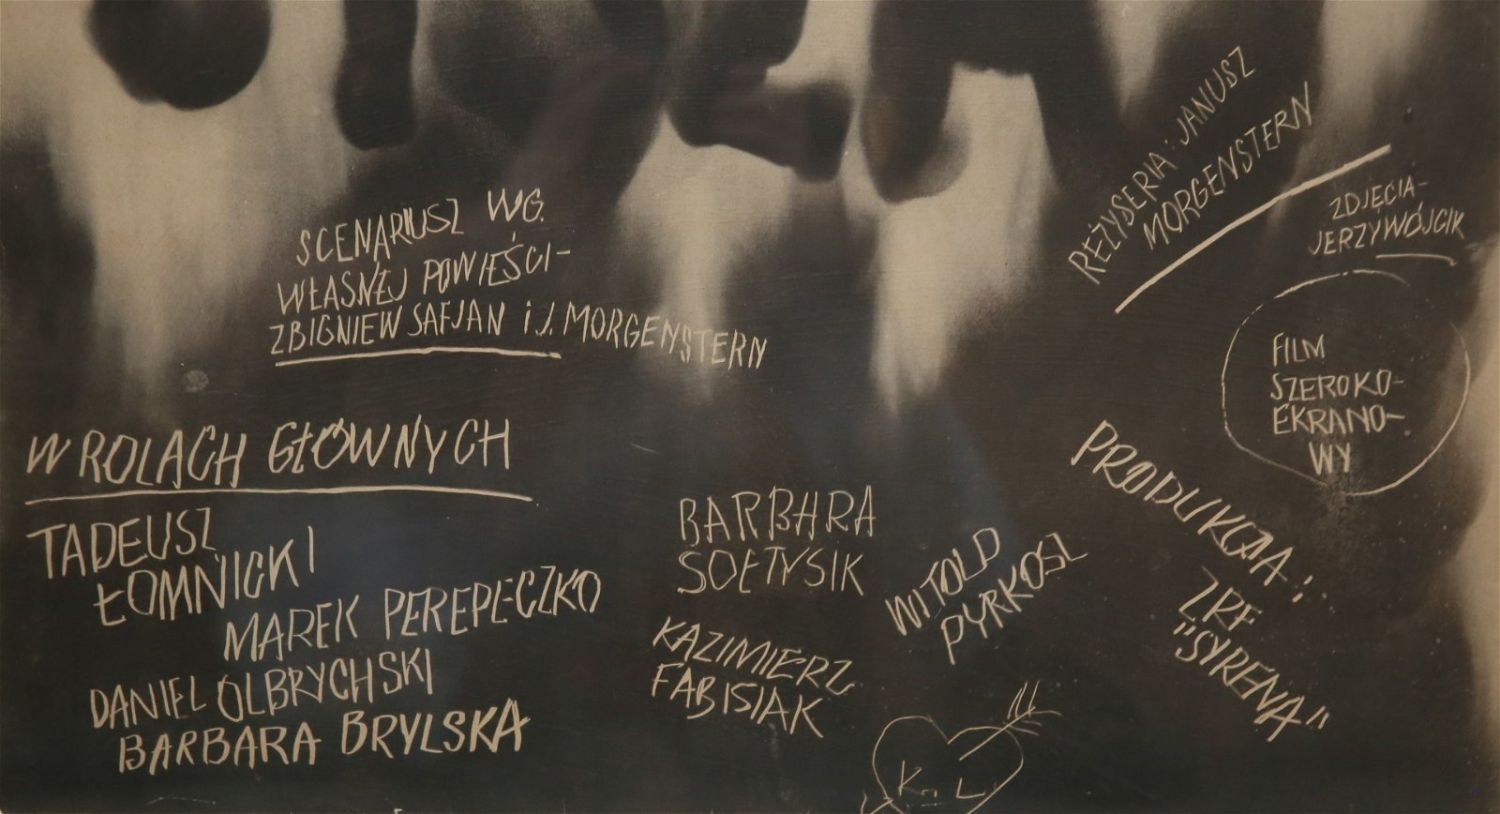 REŻYSERIA: JANUSZ
MORGENSTERN
ZDJĘCIA-
JERZY WÓJCIK
SCENARIUSZ WG.
WŁASNEJ POWIEŚCI-
ZBIGNIEW SAFJAN i J. MORGENSTERN
FILM
SZEROKO-
EKRANO-
WY
W ROLACH GŁÓWNYCH
TADEUSZ
ŁOMNICKI
MAREK PEREPECZKO
DANIEL OLBRYCHSKI
BARBARA BRYLSKA
BARBARA
SOŁTYSIK
KAZIMIERZ
FABISIAK
WITOLD
PYRKOSZ
PRODUKCJA:
ZRF
"SYRENA"
K. L.